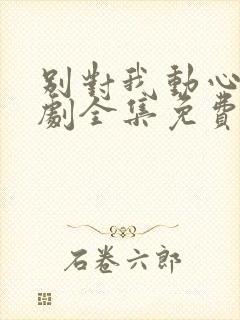 別對我動心
劇全集免費
石卷六郎